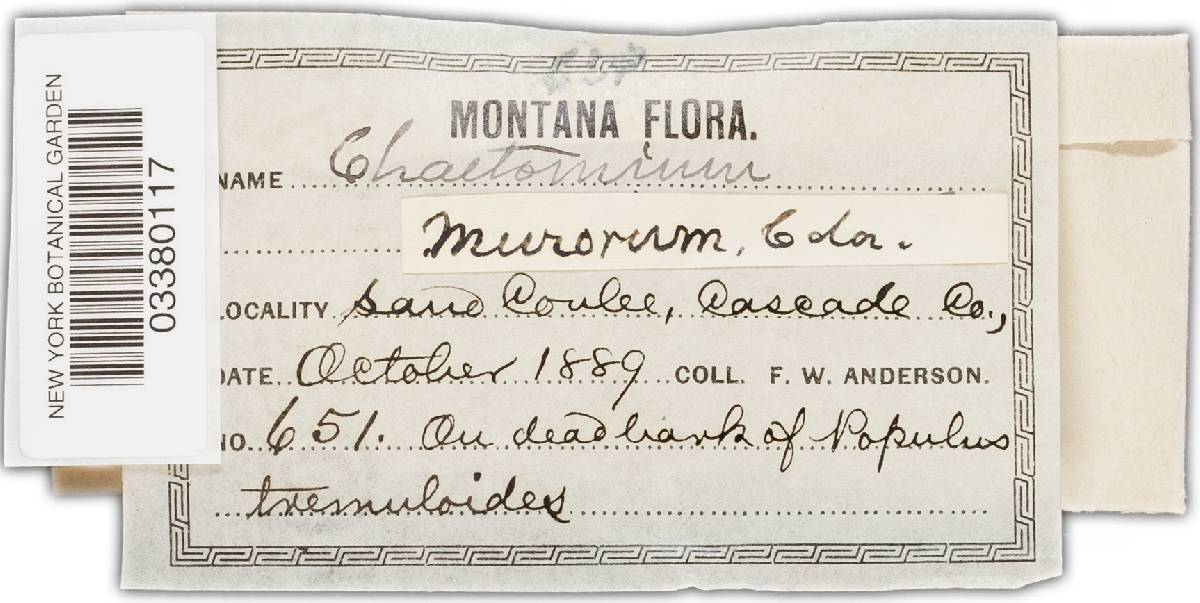 NEW YORK BOTANICAL GARDEN
03380117
MONTANA FLORA.
NAME Chaetomium
Murorum, Cda.
LOCALITY Sand Coulee, Cascade Co.,
DATE October 1889 COLL. F. W. ANDERSON.
NO. 651. On dead bark of Populus
tremuloides